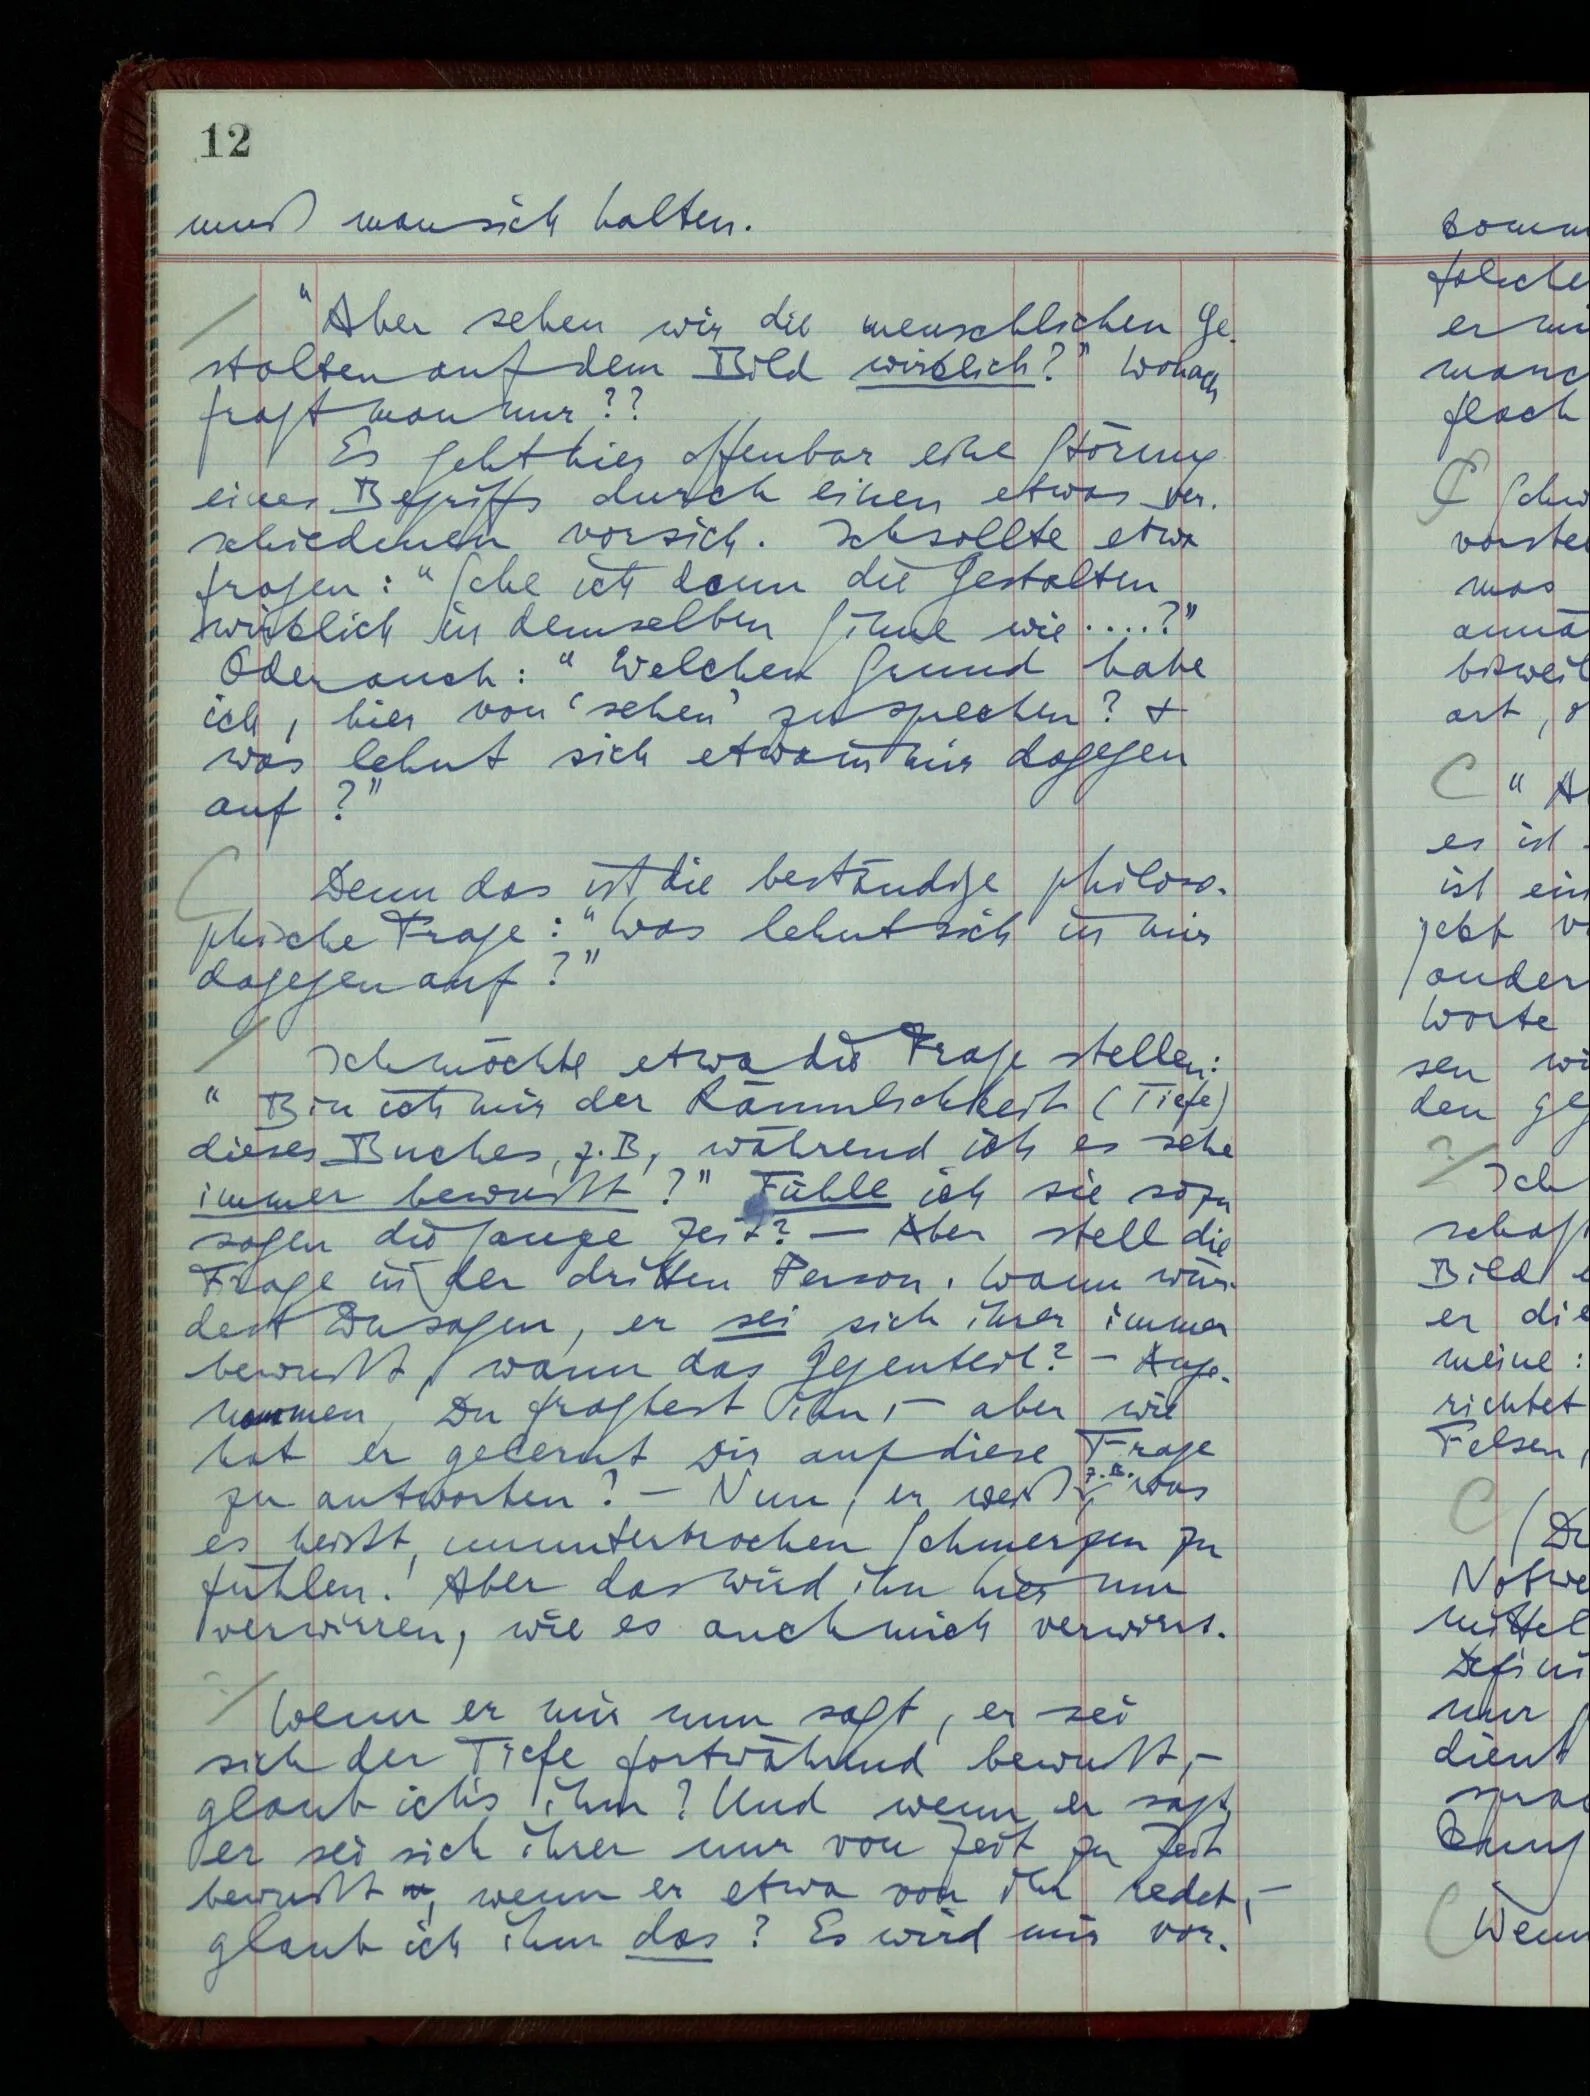 12
muß man sich halten.
"Aber sehen wir die menschlichen Ge-
stalten auf dem Bild wirklich?" Wonach
fragt man nur??
Es geht hier offenbar eine Störung
eines Begriffs durch einen etwas ver-
schiedenen vor sich. Ich sollte etwa
fragen: "Sehe ich denn die Gestalten
wirklich in demselben Sinne wie....?"
Oder auch: "Welchen Grund habe
ich, hier von 'sehen' zu sprechen? +
was lehnt sich etwa in mir dagegen
auf?"
Denn das ist die beständige philoso-
phische Frage: "Was lehnt sich in mir
dagegen auf?"
Ich möchte etwa die Frage stellen:
"Bin ich mir der Räumlichkeit (Tiefe)
dieses Buches, z.B., während ich es sehe
immer bewußt?" Fühle ich sie sozu
sagen die ganze Zeit? — Aber stell die
Frage in der dritten Person. Wann wür-
dest Du sagen, er sei sich ihrer immer
bewußt, wann das Gegenteil? – Ange-
nommen, Du fragtest ihn, – aber wie
hat er gelernt Dir auf diese Frage
zu antworten? – Nun, er weiß z.B. was
es heißt, ununterbrochen Schmerzen zu
fühlen. Aber das wird ihn hier nur
verwirren, wie es auch mich verwirrt.
Wenn er mir nun sagt, er sei
sich der Tiefe fortwährend bewußt, –
glaub ich's ihm? Und wenn er sagt,
er sei sich ihrer nur von Zeit zu Zeit
bewußt, wenn er etwa von ihr redet, –
glaub ich ihm das? Es wird mir vor-
falsche
flach
"A
es ist
ist ein
jetzt
ander
Worte
sen
den
Ich
Bild
er die
meine:
richtet
Felsen,
mittel
nur
dient
Wenn